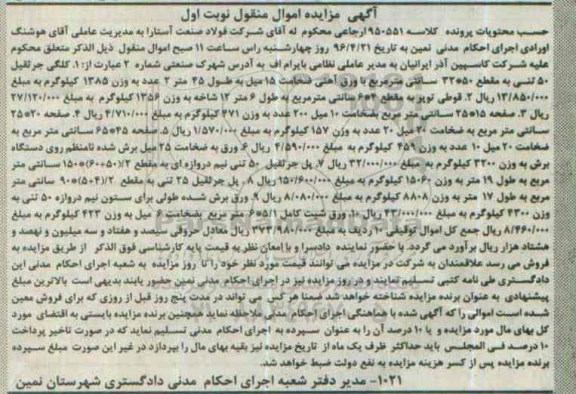 آگهی مزایده اموال منقول نوبت اول
حسب محتویات پرونده کلاسه ۹۵۰۵۵۱ ارجاعی محکوم له آقای شرکت فولاد صنعت آستارا به مدیریت عاملی آقای هوشنگ
اورادی اجرای احکام مدنی نمین به تاریخ ۹۶/۴/۲۱ روز چهارشنبه راس ساعت ۱۱ صبح اموال منقول ذیل الذکر متعلق محکوم
علیه شرکت کاسپین آذر ایرانیان به مدیر عاملی نظامی بایرام اف به آدرس شهرک صنعتی شماره ۲ عبارت از:۱. کلگی جرثقیل
۵۰ تنی به مقطع ۵۰*۳۲ سانتی مترمربع با ورق آهنی ضخامت ۱۵ میل به طول ۴۵ متر ۲ عدد به وزن ۱۳۸۵ کیلوگرم به مبلغ
۱۳/۸۵۰/۰۰۰ ریال ۲. قوطی توپر به مقطع سانتی مترمربع به طول ۶ متر ۱۲ شاخه به وزن ۱۳۵۶ کیلوگرم به مبلغ ۲۷/۱۲۰/۰۰۰
ریال ۳. صفحه ۱۵*۲۵ سانتی متر مربع بضخامت ۱۰ میل ۲۰۰ عدد به وزن ۴۷۱ کیلوگرم به مبلغ ۴/۷۱۰/۰۰۰ ریال ۴. صفحه ۲۰*۲۵
سانتی متر مربع به ضخامت ۲۰ میل ۲۰ عدد به وزن ۱۵۷ کیلوگرم به مبلغ ۱/۵۷۰/۰۰۰ ریال ۵. صفحه ۴۵*۶۵ سانتی متر مربع به
ضخامت ۲۰ میل ۱۰ عدد به وزن ۴۵۹ کیلوگرم به مبلغ ۴/۵۹۰/۰۰۰ ریال ۶. ورق به ضخامت ۲۵ میل برش شده نامنظم روی دستگاه
برش به وزن ۳۲۰۰ کیلوگرم به مبلغ ۳۲/۰۰۰/۰۰۰ ریال ۷. پل جرثقیل ۵۰ تنی نیم دروازه ای به مقطع ۲/(۵۰*۶۰)*۱۵۰ سانتی متر
مربع به طول ۱۹ متر به وزن ۱۵۰۶۰ کیلوگرم به مبلغ ۱۵۰/۶۰۰/۰۰۰ ریال ۸. پل جرثقیل ۲۵ تنی به مقطع ۲/(۵۰*۴)*۹۰ سانتی متر
مربع به طول ۱۷ متر به وزن ۸۸۰۸ کیلوگرم به مبلغ ۸/۰۸۰/۰۰۰ ریال ۹. ورق برش شده طولی برای ستون نیم دروازه ۵۰ تنی به
وزن ۴۳۰۰ کیلوگرم به مبلغ ۴۳/۰۰۰/۰۰۰ ریال ۱۰. ورق شیت کامل ۱/۵*۶ متر مربع بضخامت ۶ میل به وزن ۴۲۳ کیلوگرم به مبلغ
۸/۴۶۰/۰۰۰ ریال جمع کل اموال توقیفی ۱۰ ردیف به مبلغ ۳۷۳/۹۸۰/۰۰۰ ریال معادل حروفی سیصد و هفتاد و سه میلیون و نهصد و
هشتاد هزار ریال برآورد می گردد. با حضور نماینده دادسرا و با امعان نظر به قیمت پایه کارشناسی فوق الذکر از طریق مزایده به
فروش می رسد علاقمندان به شرکت در مزایده می توانند قیمت مورد نظر خود را تا روز مزایده به شعبه اجرای احکام مدنی این
دادگستری طی نامه کتبی تسلیم نمایند و در روز مزایده نیز در اجرای احکام مدنی نمین حضور یابند بدیهی است بالاترین مبلغ
پیشنهادی به عنوان برنده مزایده شناخته خواهد شد ضمنا هر کس می تواند در مدت پنج روز قبل از روزی که برای فروش معین
شده است اموالی را که آگهی شده با هماهنگی اجرای احکام مدنی ملاحظه نماید همچنین برنده مزایده بایستی به اقتضای مورد
کل بهای مال مورد مزایده و یا ۱۰ درصد آن را به عنوان سپرده به اجرای احکام مدنی تسلیم نماید که در صورت تاخیر پرداخت
۱۰ درصد فی المجلس باید حداکثر ظرف یک ماه از تاریخ مزایده نیز بقیه بهای مال را بپردازد در غیر این صورت مبلغ سپرده
برنده مزایده پس از کسر هزینه مزایده به نفع دولت ضبط خواهد شد.
۱۰۲۱- مدیر دفتر شعبه اجرای احکام مدنی دادگستری شهرستان نمین